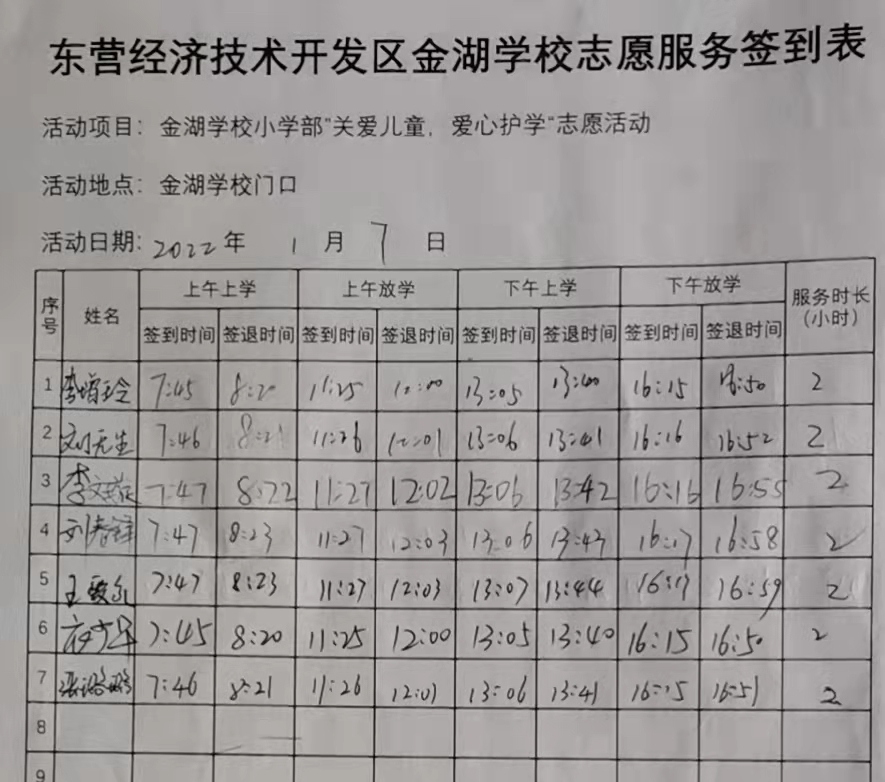 东营经济技术开发区金湖学校志愿服务签到表
活动项目：金湖学校小学部"关爱儿童，爱心护学"志愿活动
活动地点：金湖学校门口
活动日期：2022年 1 月 7 日
序号 姓名 上午上学 上午放学 下午上学 下午放学 服务时长(小时)
签到时间 签退时间 签到时间 签退时间 签到时间 签退时间 签到时间 签退时间
1 李增玲 7:45 8:20 11:25 12:00 13:05 13:40 16:15 16:50 2
2 刘元生 7:46 8:21 11:26 12:01 13:06 13:41 16:16 16:52 2
3 李文 7:47 8:22 11:27 12:02 13:06 13:42 16:16 16:55 2
4 刘春 7:47 8:23 11:27 12:03 13:06 13:43 16:17 16:58 2
5 王 7:47 8:23 11:27 12:03 13:07 13:44 16:17 16:59 2
6 7:45 8:20 11:25 12:00 13:05 13:40 16:15 16:50 2
7 张 7:46 8:21 11:26 12:01 13:06 13:41 16:15 16:51 2
8
9